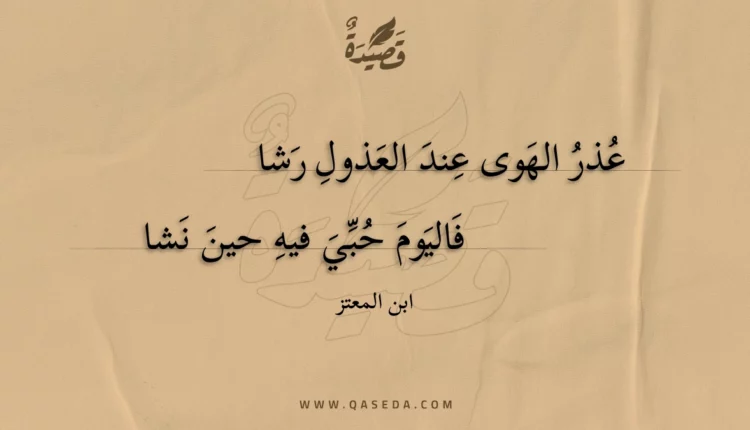 قَصِيْدَةٌ
عُذرُ الهَوى عِندَ العَذولِ رَشا
فَاليَومَ حُبِّيَ فيهِ حينَ نَشا
ابن المعتز
WWW.QASEDA.COM